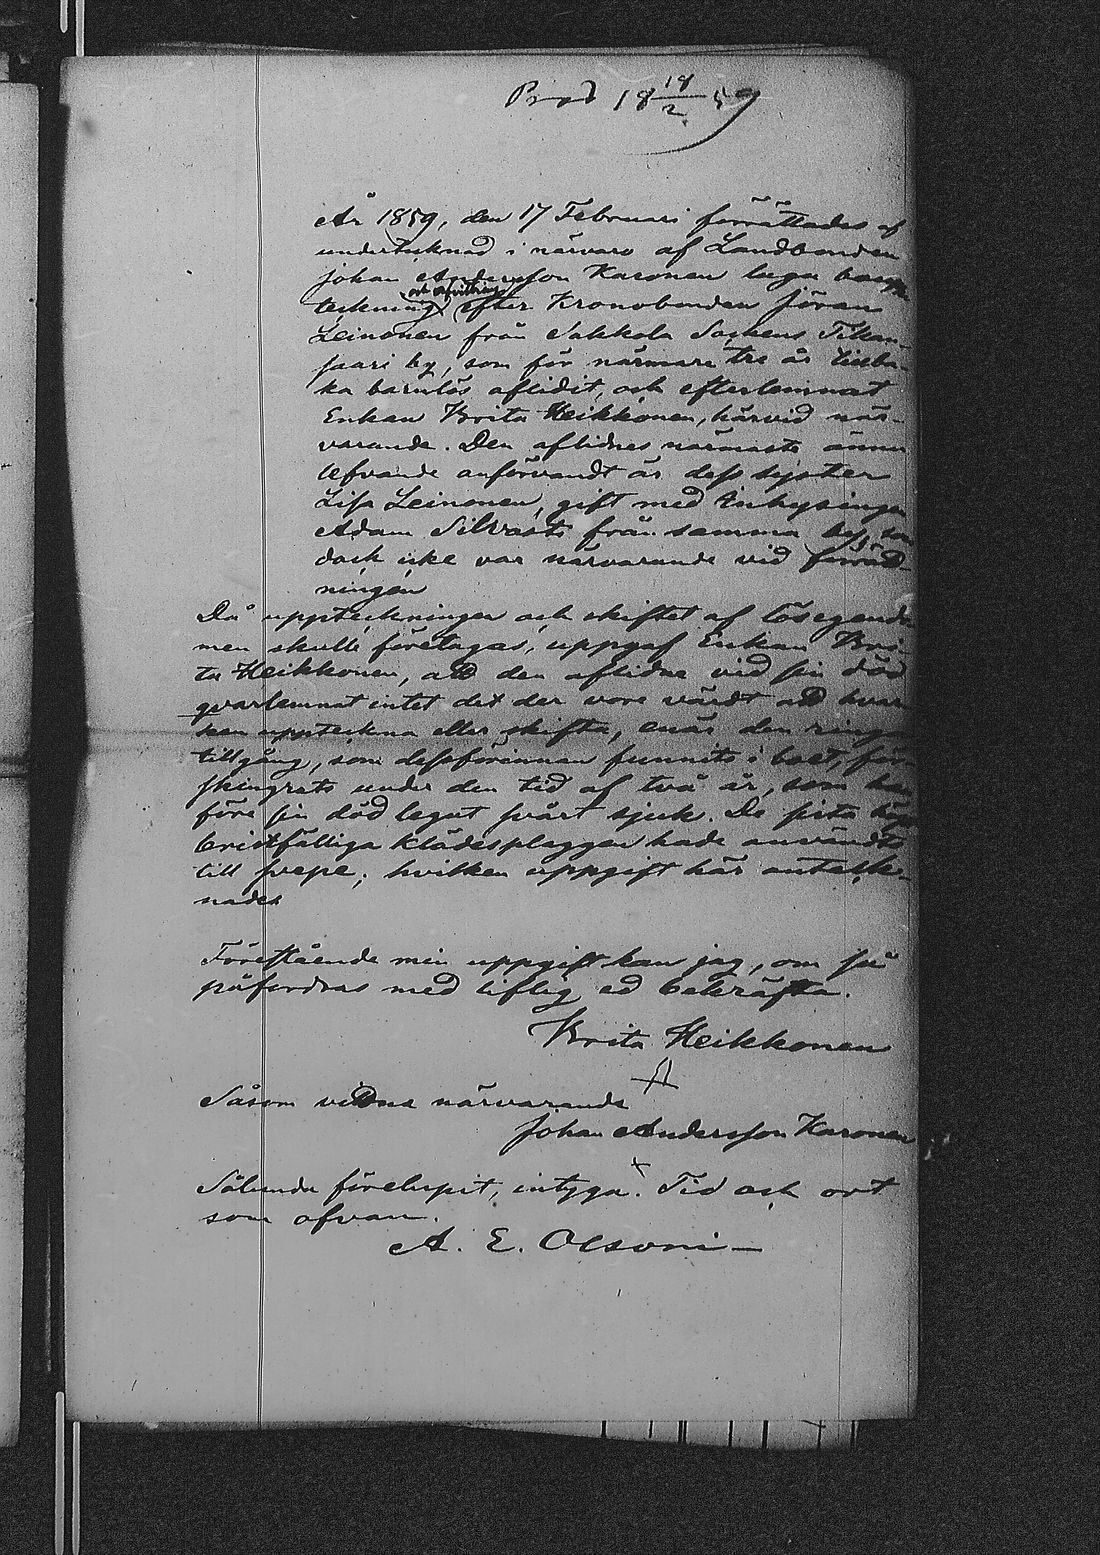 Prod 18 19/2 59
År 1859, den 17 Februari förrättades af
undertecknad i närvaro af Landbonden
Johan Andersson Karonen laga boupp-
och afvittring
teckning efter Kronobonden Jöran
Leinonen från Sakkola Sockens Tikan-
saari by, som för närmare tre år tillba-
ka barnlös aflidit, och efterlemnat
Enkan Brita Heikkonen, härvid när-
varande. Den aflidnes närmaste ännu
lefvande anförvandt är dess syster
Lisa Leinonen, gift med Inhysingen
Adam Silvasti från samma by, som
dock icke var närvarande vid förrätt-
ningen
Då uppteckningen och skiftet af lösegendo-
men skulle företagas, uppgaf Enkan Bri-
ta Heikkonen, att den aflidne vid sin död
qvarlemnat intet det der vore värdt att hvar-
ken uppteckna eller skifta, enär den ringa
tillgång, som dessförinnan funnits i boet, för-
skingrats under den tid af två år, som han
före sin död legat svårt sjuk. De sista högst
bristfälliga klädesplaggen hade användts
till svepe; hvilken uppgift här anteck-
nades
Förestående min uppgift kan jag, om så
påfordras med liflig ed bekräfta.
Brita Heikkonen
Såsom vittne närvarande
Johan Andersson Karonen
x
Sålunda förelupit, intyga. Tid och ort
som ofvan.
A. E. Olsoni